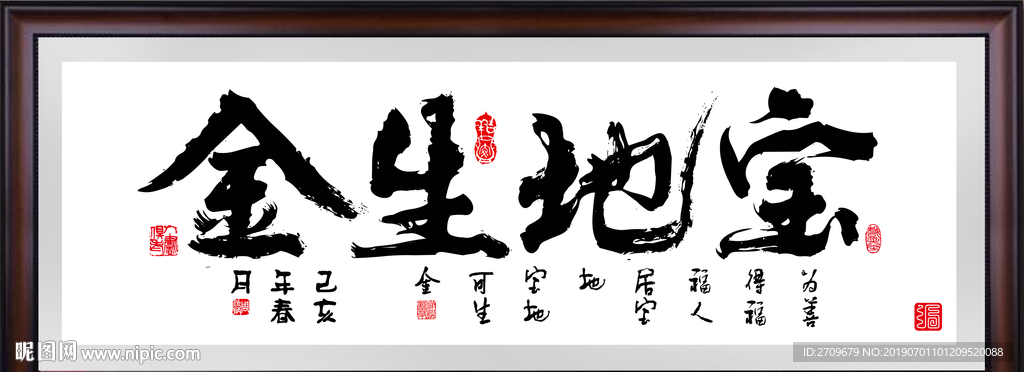 宝地生金
为善
得福
福人
居宝
地
宝地
可生
金
己亥
年春
月
昵图网 www.nipic.com
ID:2709679 NO:20190701101209520088